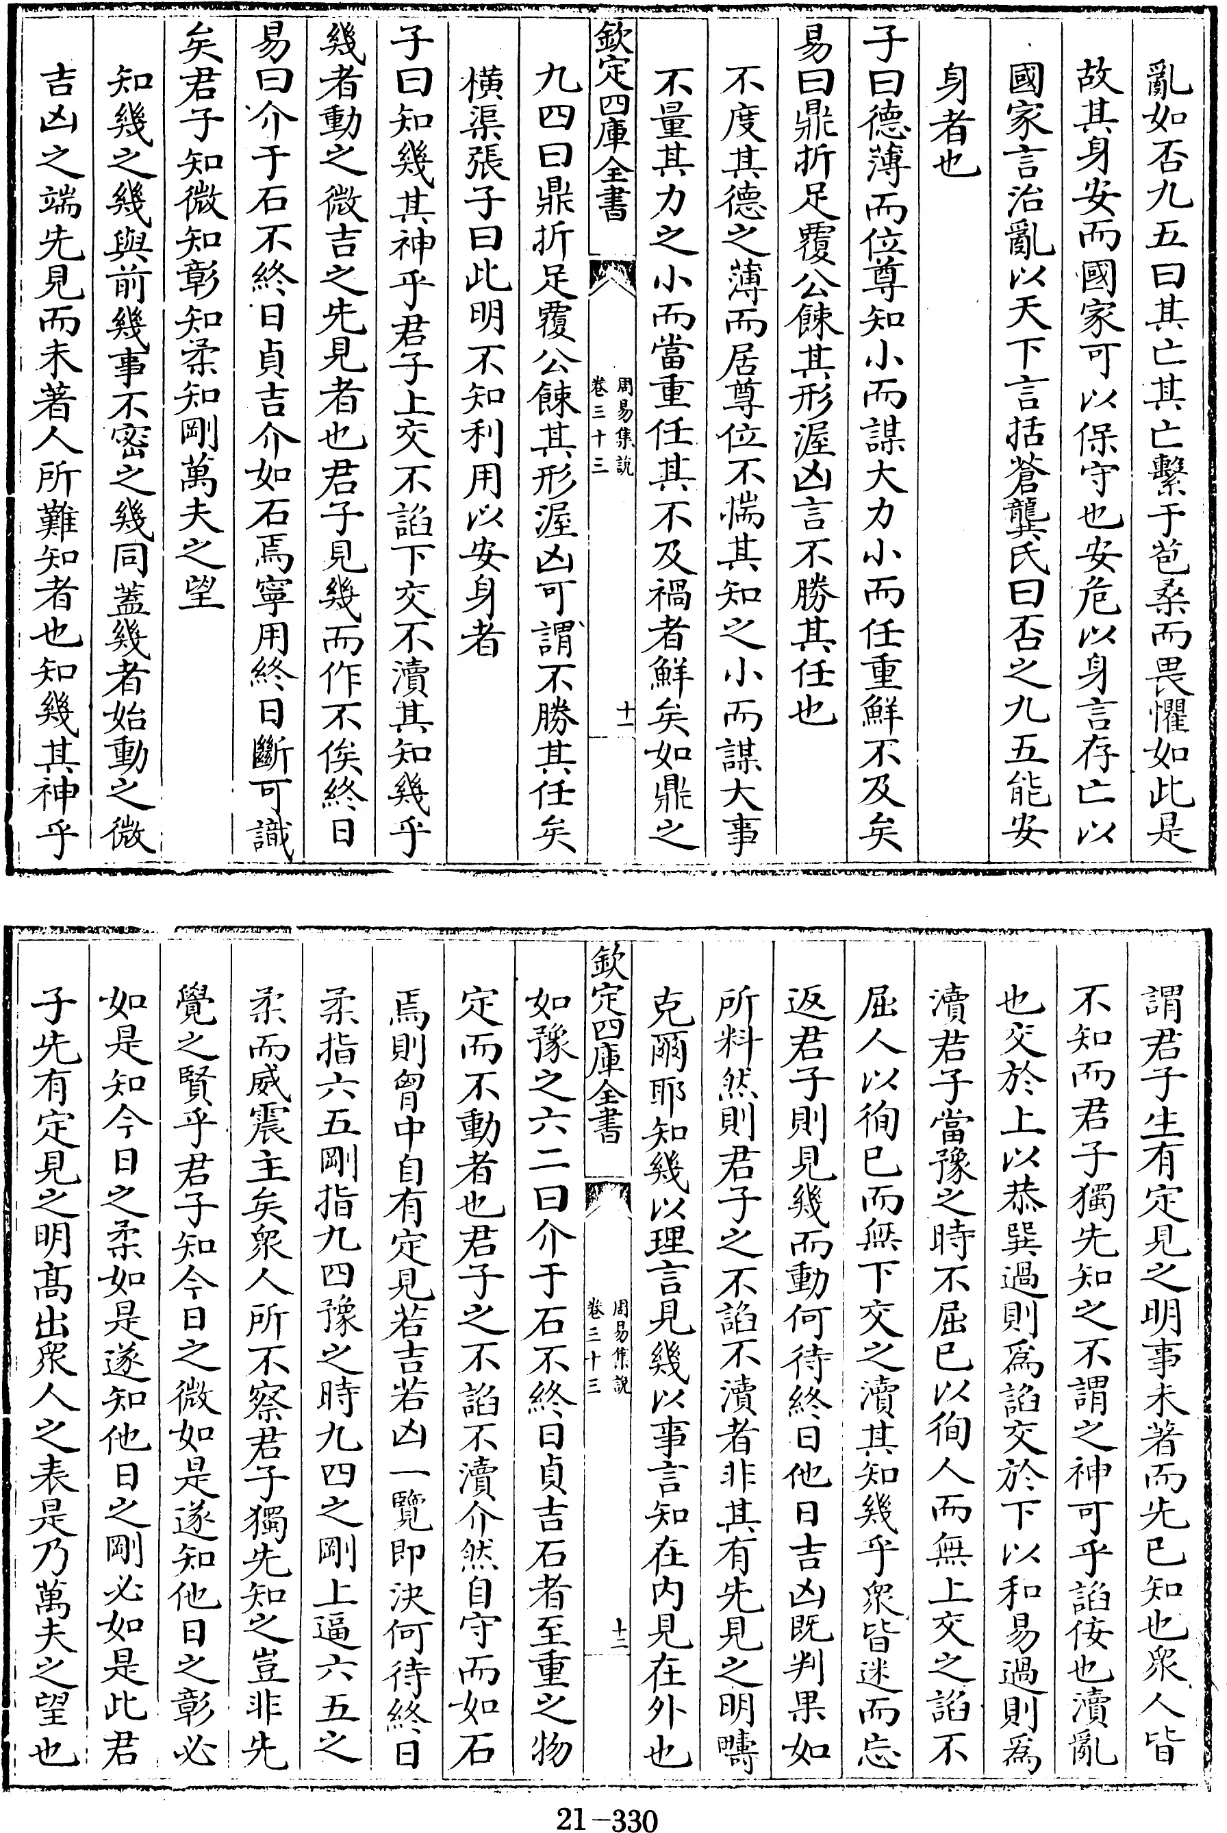 亂如否九五曰其亡其亡繫于苞桑而畏懼如此是
故其身安而國家可以保守也安危以身言存亡以
國家言治亂以天下言括蒼龔氏曰否之九五能安
身者也
子曰德薄而位尊知小而謀大力小而任重鮮不及矣
易曰鼎折足覆公餗其形渥凶言不勝其任也
不度其德之薄而居尊位不惴其知之小而謀大事
不量其力之小而當重任其不及禍者鮮矣如鼎之
欽定四庫全書
周易集說
卷三十三
十一
九四曰鼎折足覆公餗其形渥凶可謂不勝其任矣
橫渠張子曰此明不知利用以安身者
子曰知幾其神乎君子上交不諂下交不瀆其知幾乎
幾者動之微吉之先見者也君子見幾而作不俟終日
易曰介于石不終日貞吉介如石焉寧用終日斷可識
矣君子知微知彰知柔知剛萬夫之望
知幾之幾與前幾事不密之幾同蓋幾者始動之微
吉凶之端先見而未著人所難知者也知幾其神乎
謂君子生有定見之明事未著而先已知也衆人皆
不知而君子獨先知之不謂之神可乎諂佞也瀆亂
也交於上以恭巽過則為諂交於下以和易過則為
瀆君子當豫之時不屈已以徇人而無上交之諂不
屈人以徇已而無下交之瀆其知幾乎衆皆迷而忘
返君子則見幾而動何待終日他日吉凶既判果如
所料然則君子之不諂不瀆者非其有先見之明疇
克爾耶知幾以理言見幾以事言知在内見在外也
欽定四庫全書
周易集說
卷三十三
十二
如豫之六二曰介于石不終日貞吉石者至重之物
定而不動者也君子之不諂不瀆介然自守而如石
焉則胷中自有定見若吉若凶一覽即決何待終日
柔指六五剛指九四豫之時九四之剛上逼六五之
柔而威震主矣衆人所不察君子獨先知之豈非先
覺之賢乎君子知今日之微如是遂知他日之彰必
如是知今日之柔如是遂知他日之剛必如是此君
子先有定見之明髙出衆人之表是乃萬夫之望也
21-330